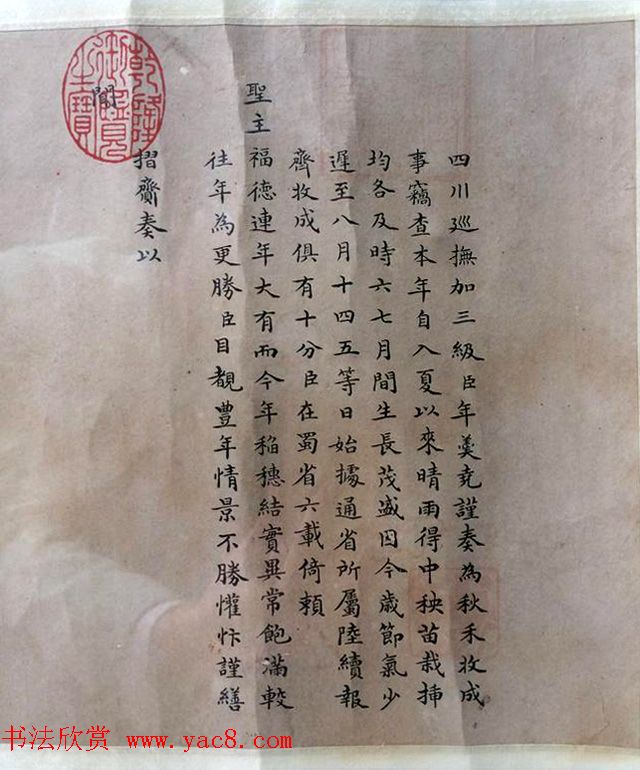 四川巡撫加三級臣年羹堯謹奏為秋禾收成
事竊查本年自入夏以來晴雨得中秧苗栽揷
均各及時六七月間生長茂盛因今歲節氣少
遲至八月十四五等日始據通省所屬陸續報
齊收成俱有十分臣在蜀省六載倚賴
聖主
福德連年大有而今年稻穗結實異常飽滿較
往年為更勝臣目覩豐年情景不勝懽忭謹繕
摺齎奏以
聞
乾隆御覽之寶
书法欣赏 www.yac8.com